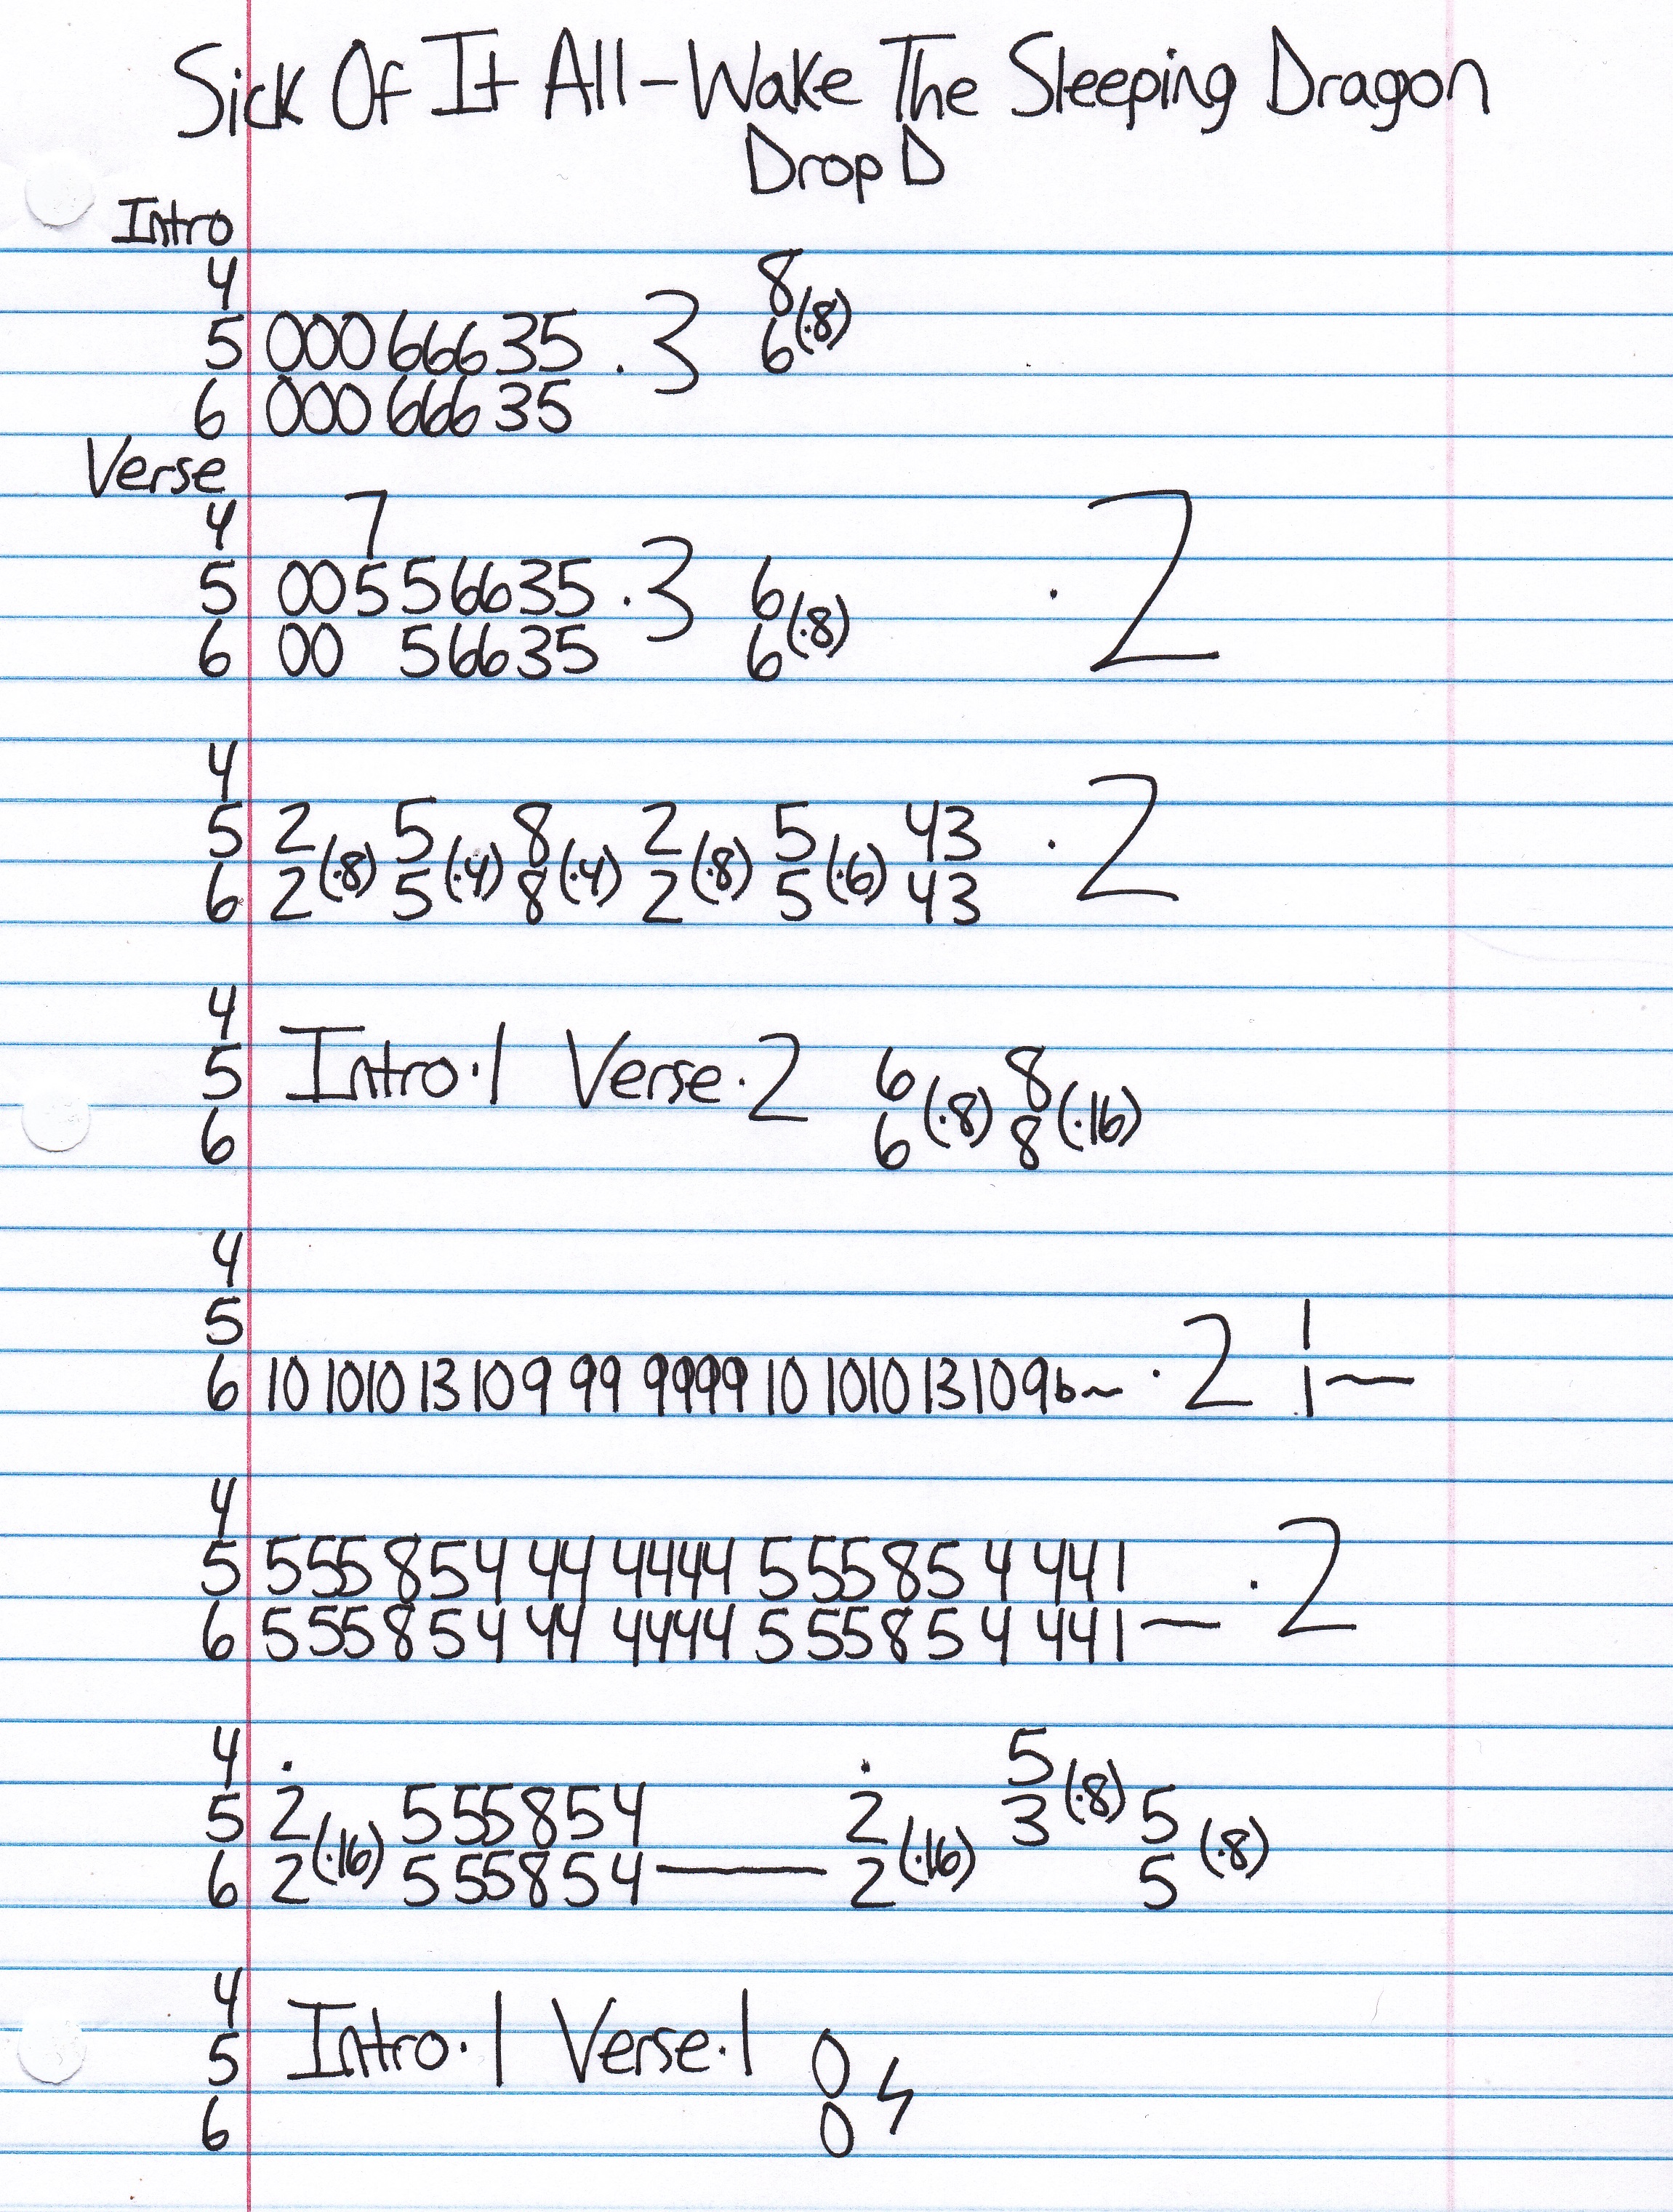 Sick Of It All - Wake The Sleeping Dragon
Drop D
Intro
4 8
5 000 666 35 .3 6 (.8)
6 000 666 35
Verse
4 7
5 00 5 5 66 35 .3 6 . 2
6 00 5 66 35 6 (.8)
4
5 2 5 8 2 5 43 . 2
6 2 (.8) 5 (.4) 8 (.4) 2 (.8) 5 (.6) 43
4
5 Intro.1 Verse.2 6 8
6 6 (.8) 8 (.16)
4
5 1
6 10 1010 13 10 9 99 9999 10 1010 13 10 9b~ .2 1 —
4
5 5 55 8 5 4 44 4444 5 55 8 5 4 44 1 . 2
6 5 55 8 5 4 44 4444 5 55 8 5 4 44 1 —
4 . . 5
5 2 5 55 8 5 4 2 3 (.8) 5
6 2 (.16) 5 55 8 5 4 — 2 (.16) 5 (.8)
4
5 Intro.1 Verse.1 0
6 0